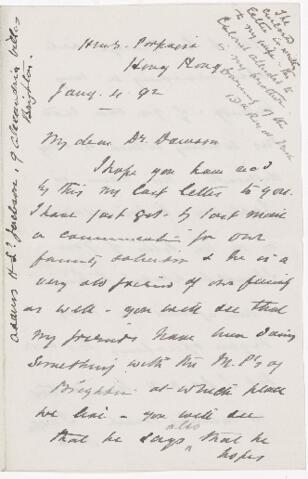 H.M.S. Porpoise
Hong Kong
Jany. 4. 92
My dear Dr. Dawson
I hope you have recd
by this my last letter to you.
I have just got by last mail
a communication from our
family solicitor & he is a
very old friend of our family
as well - you will see that
my friends have been doing
something with the M.P's of
Brighton at which place
we live - you will see
also
that he says ^ that he
hopes
The
enclosed is written
to my wife the
Colonel alluded to
is my brother
Address H. Lt. Jackson, 9 Alexandria Villas
Brighton.